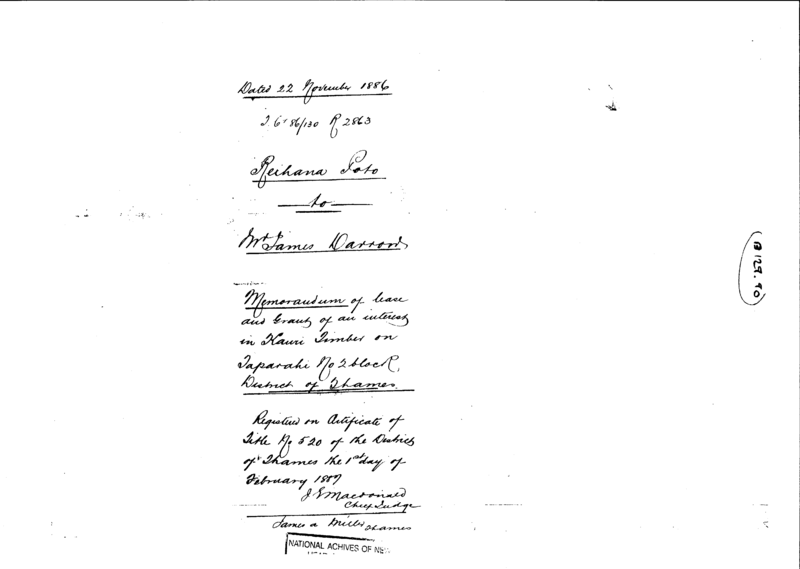 Dated 22 November 1886
J. Ct 86/130 R 2863
Reihana Poto
to
Mr James Darrow
Memorandum of lease
and Grant of an interest
in Kauri Timber on
Taparahi No 2 block
District of Thames
Registered on Certificate of
Title No 520 of the District
of Thames the 1st day of
February 1887
J E Macdonald
Chief Judge
James A Miller Thames
NATIONAL ACHIVES OF NE
B 129. 90